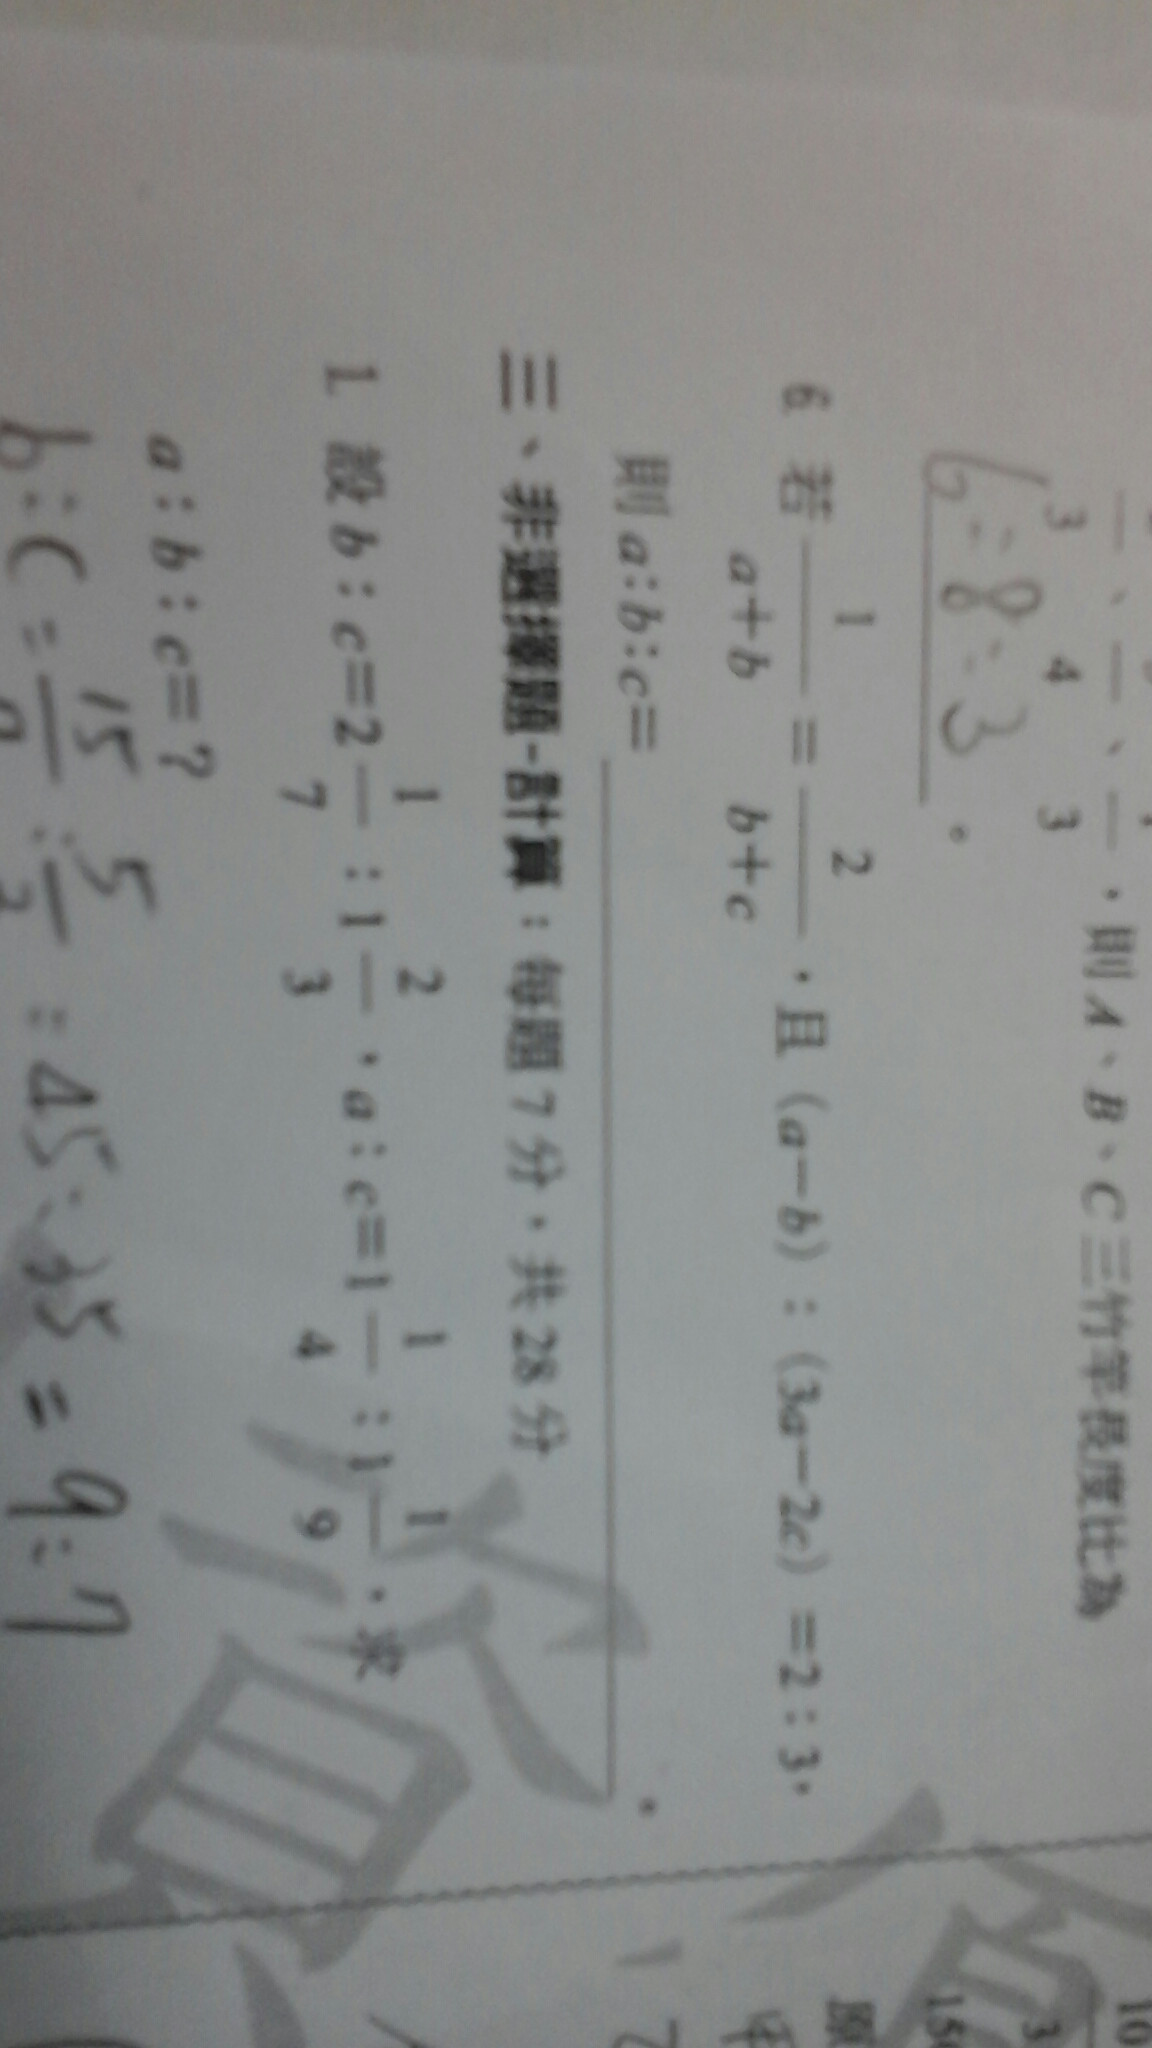 3 4 3
— 、 — 、 — ，則 A、B、C 三竹竿長度比為
6:8:3 。
6. 若 1/(a+b) = 2/(b+c) ，且（a－b）：（3a－2c）＝2：3，
則 a：b：c＝ 。
三、非選擇題-計算：每題 7 分，共 28 分
1. 設 b：c＝2 1/7：1 2/3，a：c＝1 1/4：1 1/9，求
a：b：c＝？
b:c = 15/ : 5/ = 45:35 = 9:7
10
3
150
願
1